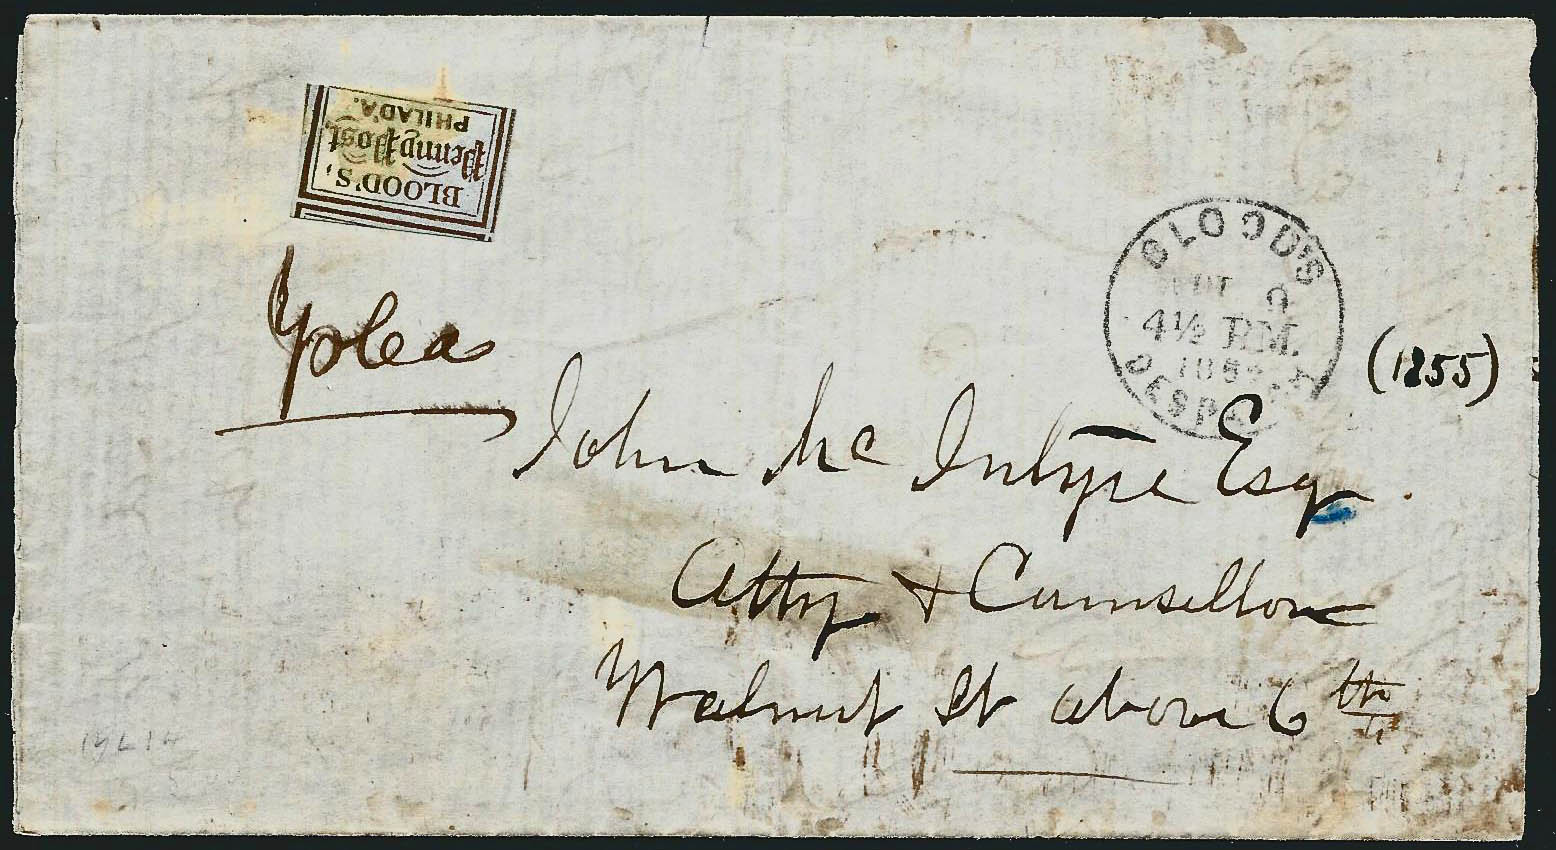 BLOOD'S,
Penny Post
PHILAD'A.
BLOOD'S
4½ P.M.
185
DESPATCH
(1855)
John McIntyre Esq.
Atty & Counsellor
Walnut St above 6th
15L14